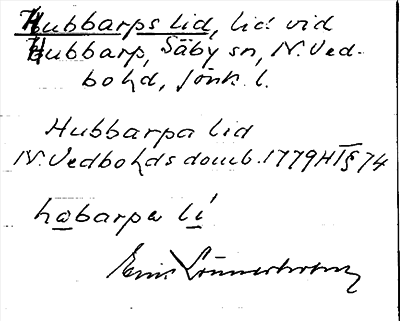 Hubbarps lid, lid vid
Hubbarp, Säby sn, N. Ved-
bo hd, Jönk. l.
Hubbarpa lid
N. Vedbo hds domb. 1779 HT § 74
habarpa li